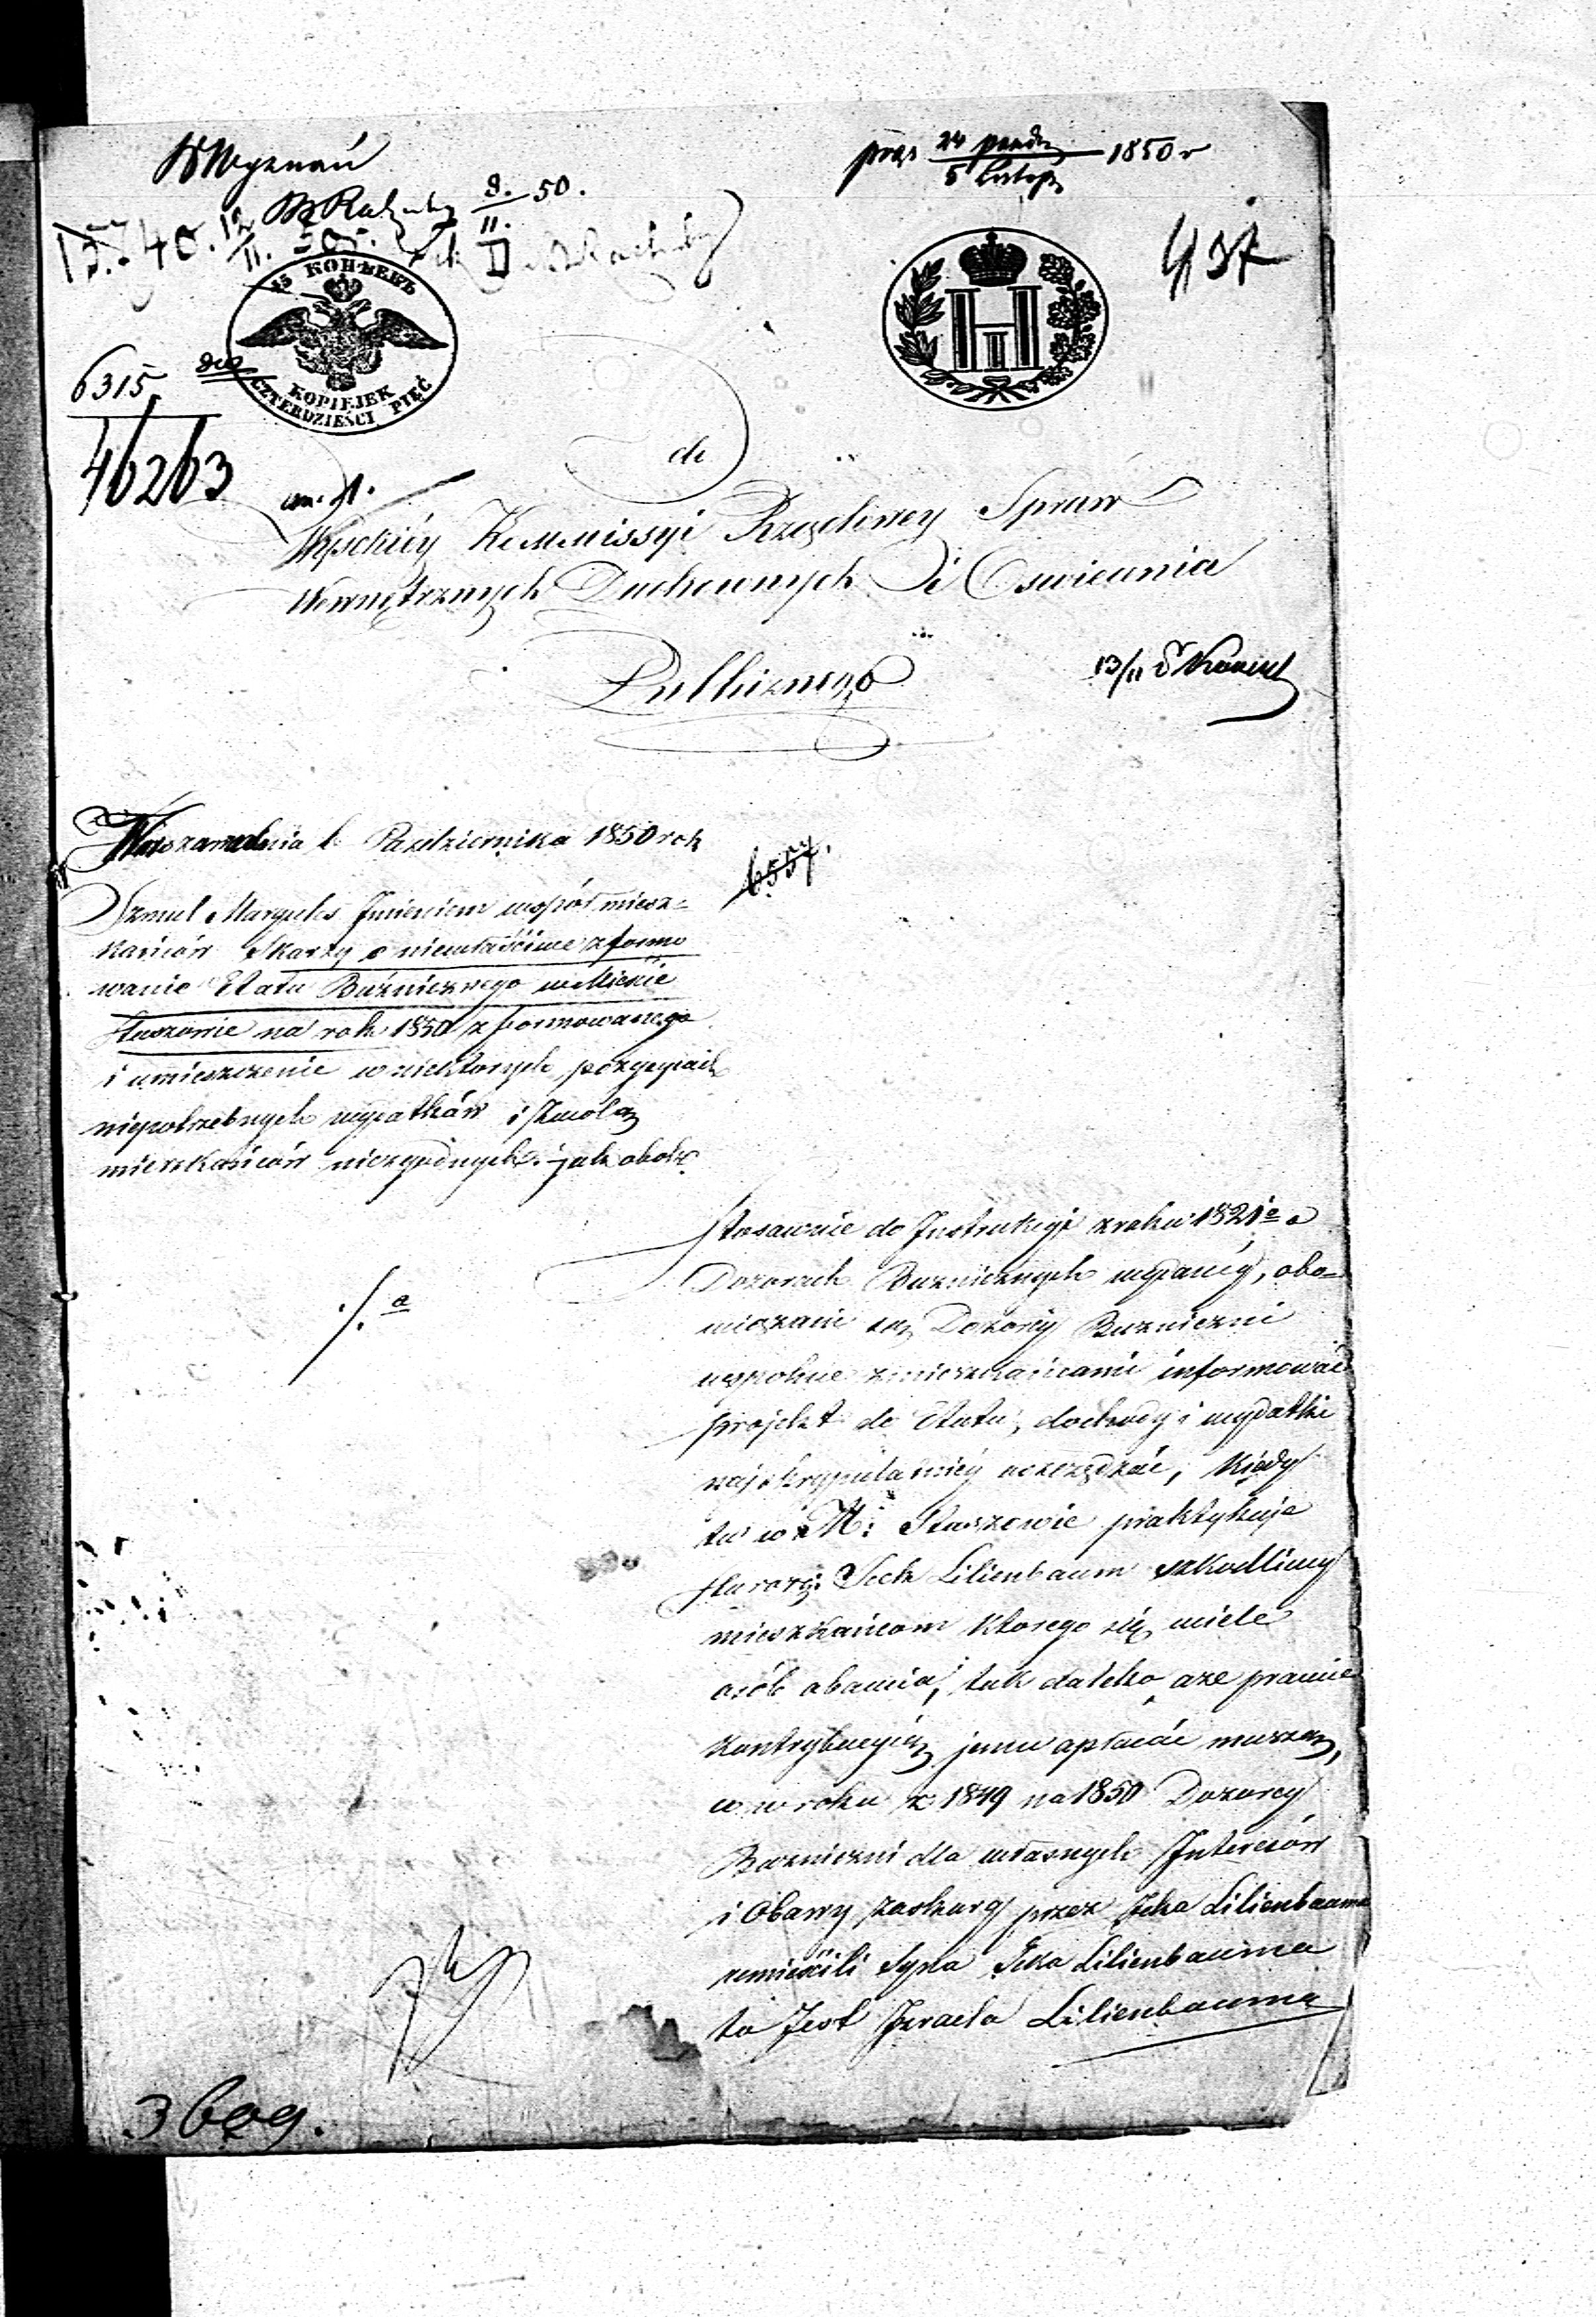 W Wyznań
prez 24 paźdz / 5 Listop 1850 r
8. / 11. 50.
15740. 12 / 11. 50 r.
437
45 КОПѢЕКЪ
KOPIEJEK
CZTERDZIEŚCI PIĘĆ
H I
6315
46263
do
Wysokiéy Kommissyi Rządowey Spraw
Wewnętrznych Duchownych i Oswiecenia
Publicznego
13/11
Warszawa dnia Pazdziernika 1850 rok
6557.
Szmul Margules Imieniem współ miesz-
kańców Skarży o niewłaściwe zformo
wanie Etatu Bużnicznego w Mieście
Staszowie na rok 1850 zformowanego
i umieszczenie w niektorych pozycyiach
niepotrzebnych wydatków i z wolą
mieszkańców niezgodnych jak obok
Stosownie do Instrukcyi z roku 1821 o
Dozorach Buzniczných wydaney, obo-
wiązani są Dozorcy Buzniczni
wspolnie z mieszkańcami informować
projekt do Etatu, dochody i wydatki
najskrypulatniéy oszczędzać, kiedy
tu w M: Staszowie praktykuje
starozý: Icek Lilienbaum szkodliwy
mieszkańcom ktorego się wiele
osób obawia, tak daleko aze prawie
kontrybucyią jemu opłacać muszą,
w roku z 1849 na 1850 Dozorcy
Buzniczni dla własnych Interesów
i Obawy zaskarg przez Icka Lilienbauma
umieścili Syna Icka Lilienbauma
to Jest Izraela Lilienbauma
3 bog.